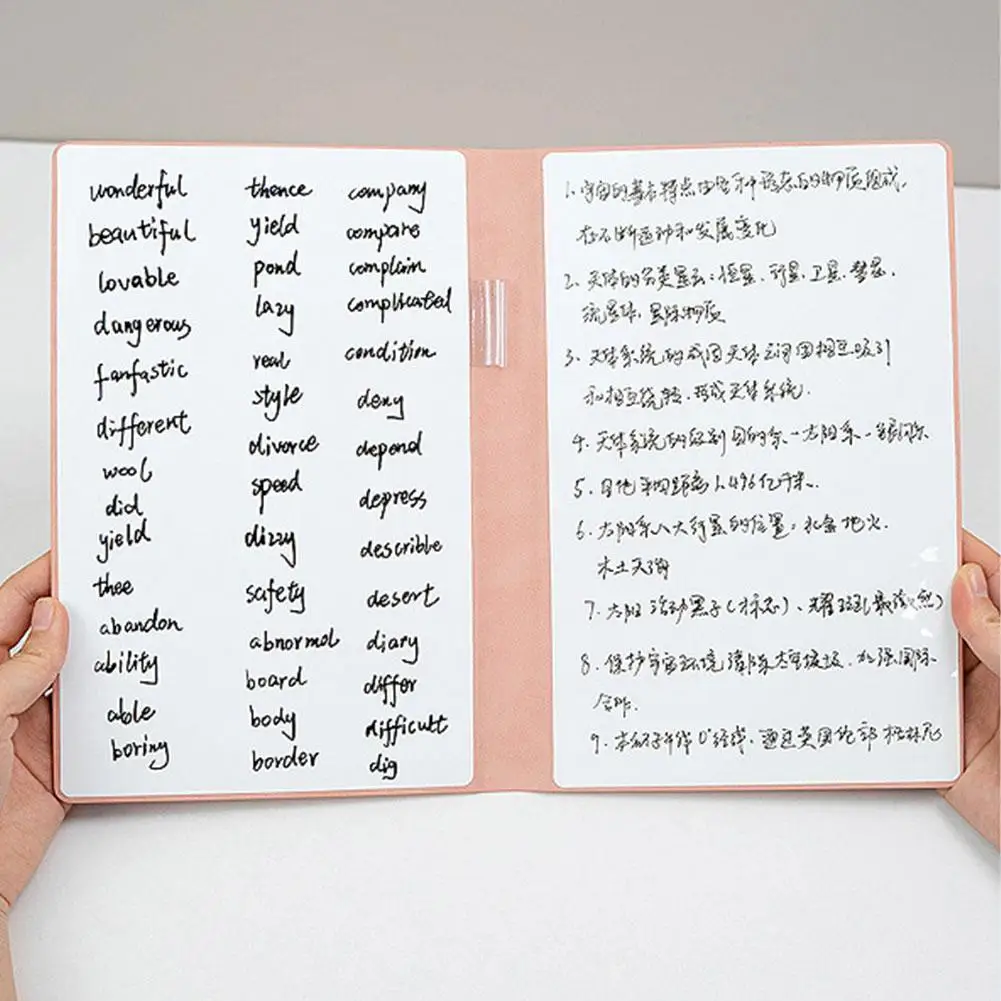 wonderful
beautiful
lovable
dangerous
fanfastic
different
wool
did
yield
thee
abandon
ability
able
boring
thence
yield
pond
lazy
real
style
divorce
speed
dizzy
safety
abnormal
board
body
border
company
compare
complain
complicated
condition
deny
depend
depress
describle
desert
diary
differ
difficult
dig
1.宇宙的基本特点由各种形态的物质组成,
在不断运动和发展变化
2.天体的分类星云:恒星、行星、卫星、彗星、
流星体、星际物质
3、天体系统的成因天体之间因相互吸引
和相互绕转、形成天体系统.
4、天体系统的级别 — 太阳系 — 银河系
5、日地平均距离1.496亿千米、
6、太阳系八大行星的位置:水金地火
木土天海
7、太阳活动黑子(标志)、耀斑(最激烈)
8、保护宇宙环境清除太空垃圾、加强国际
合作.
9、本初子午线0°经线、通过英国伦敦格林尼